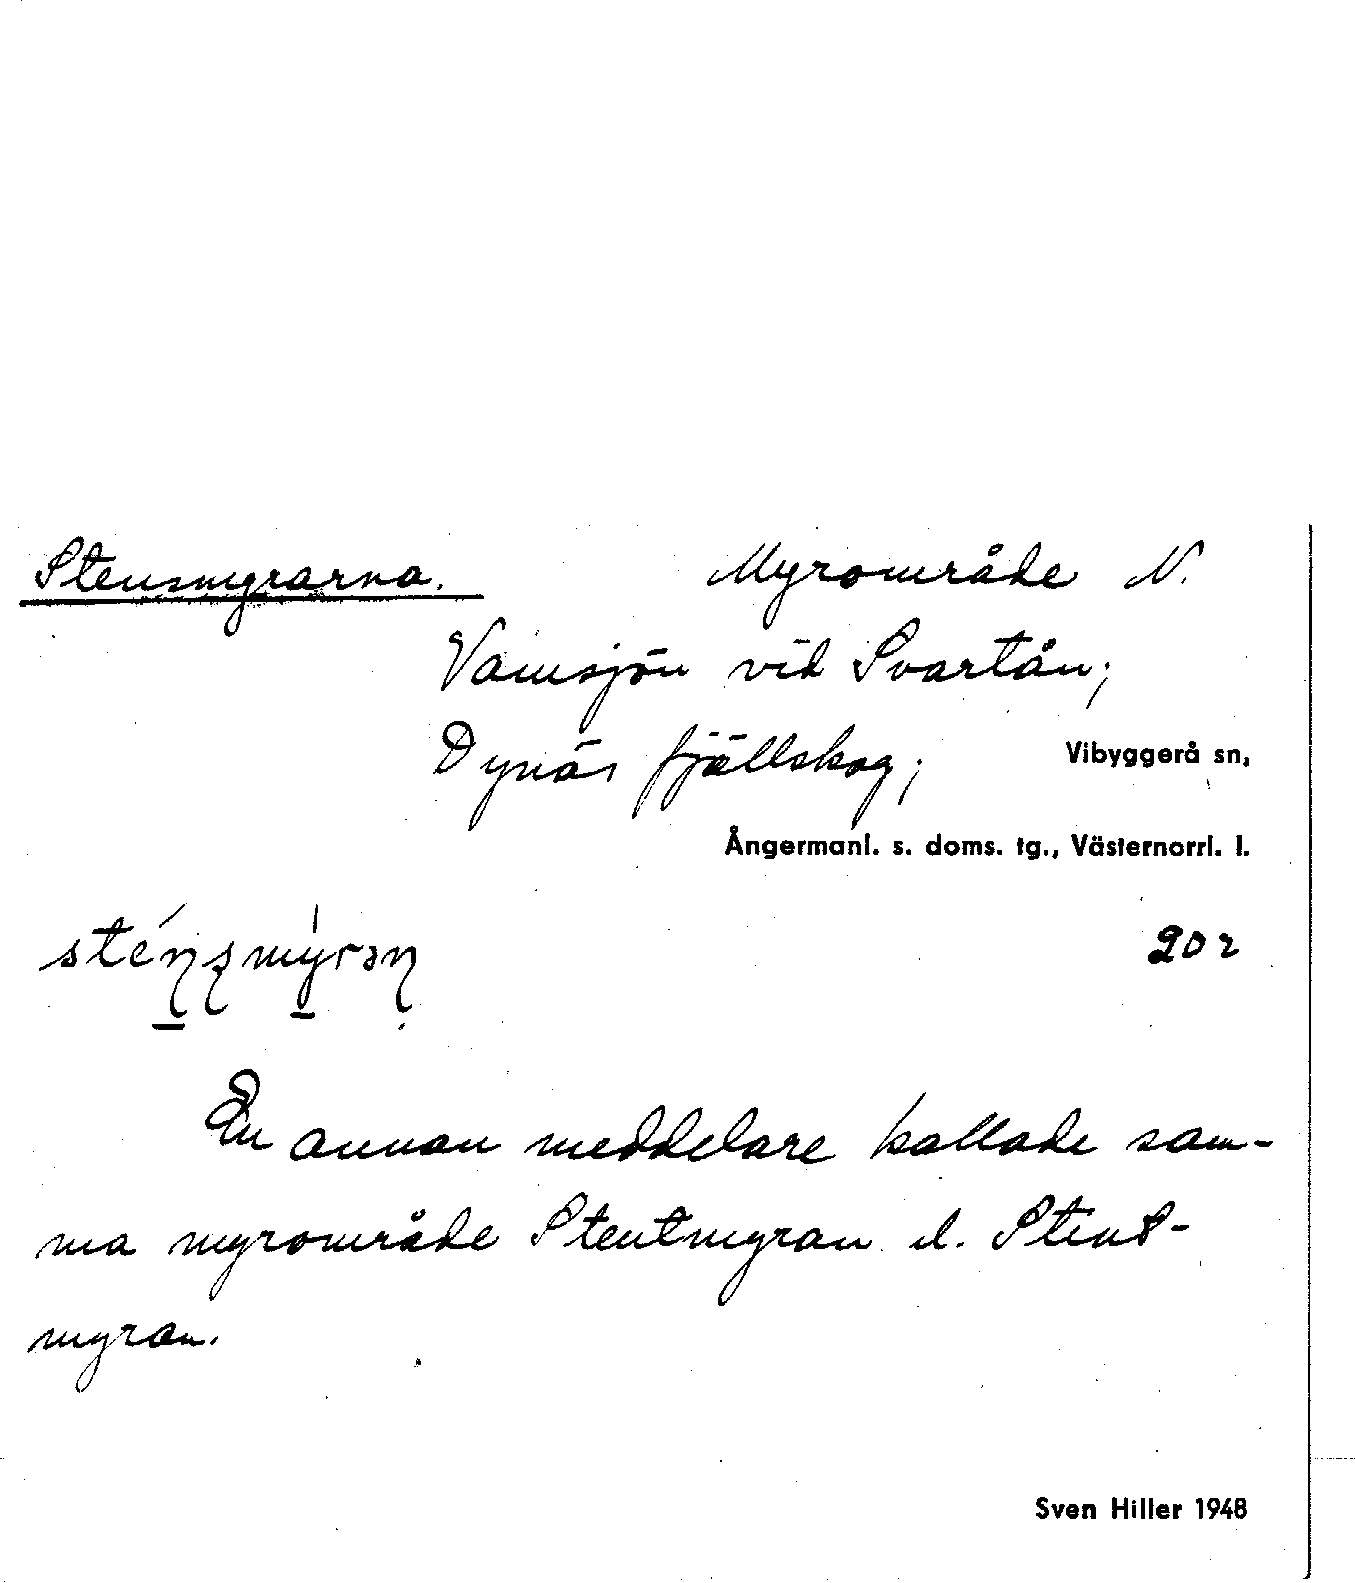 Stensmyrarna. Myrområde N.
Vämsjön vid Svartån;
Dynäs fjällskog; Vibyggerå sn,
Ångermanl. s. doms. tg., Västernorrl. l.
202
En annan meddelare kallade sam-
ma myrområde Stentmyran el. Stint-
myran.
Sven Hiller 1948